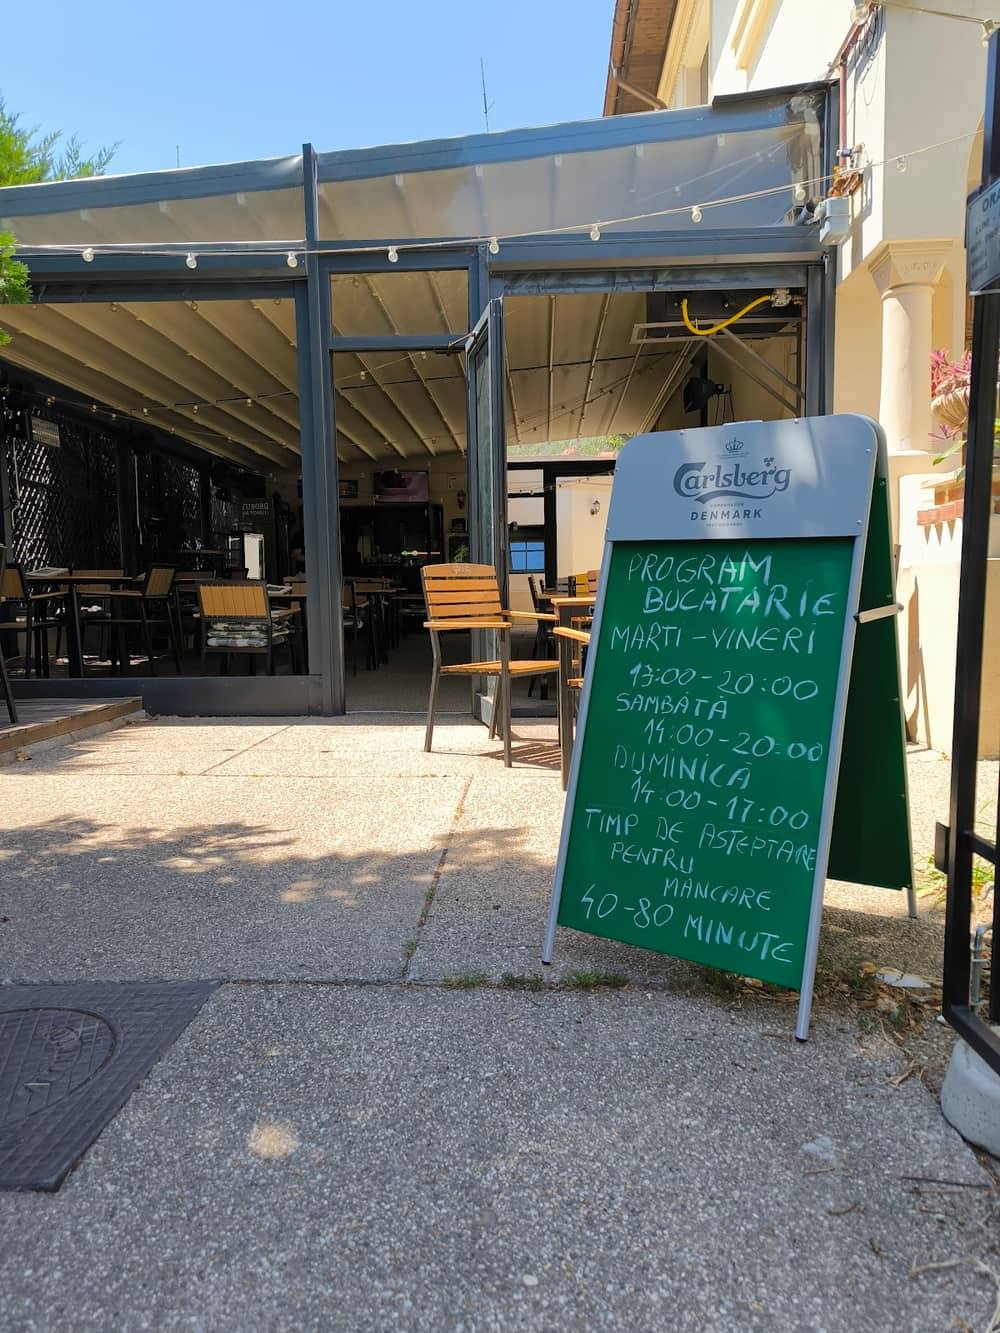 Carlsberg
COPENHAGEN
DENMARK
PROGRAM
BUCATARIE
MARTI - VINERI
13:00 - 20:00
SAMBĂTĂ
14:00 - 20:00
DUMINICĂ
14:00 - 17:00
TIMP DE AȘTEPTARE
PENTRU
MANCARE
40 - 80 MINUTE
TUBORG